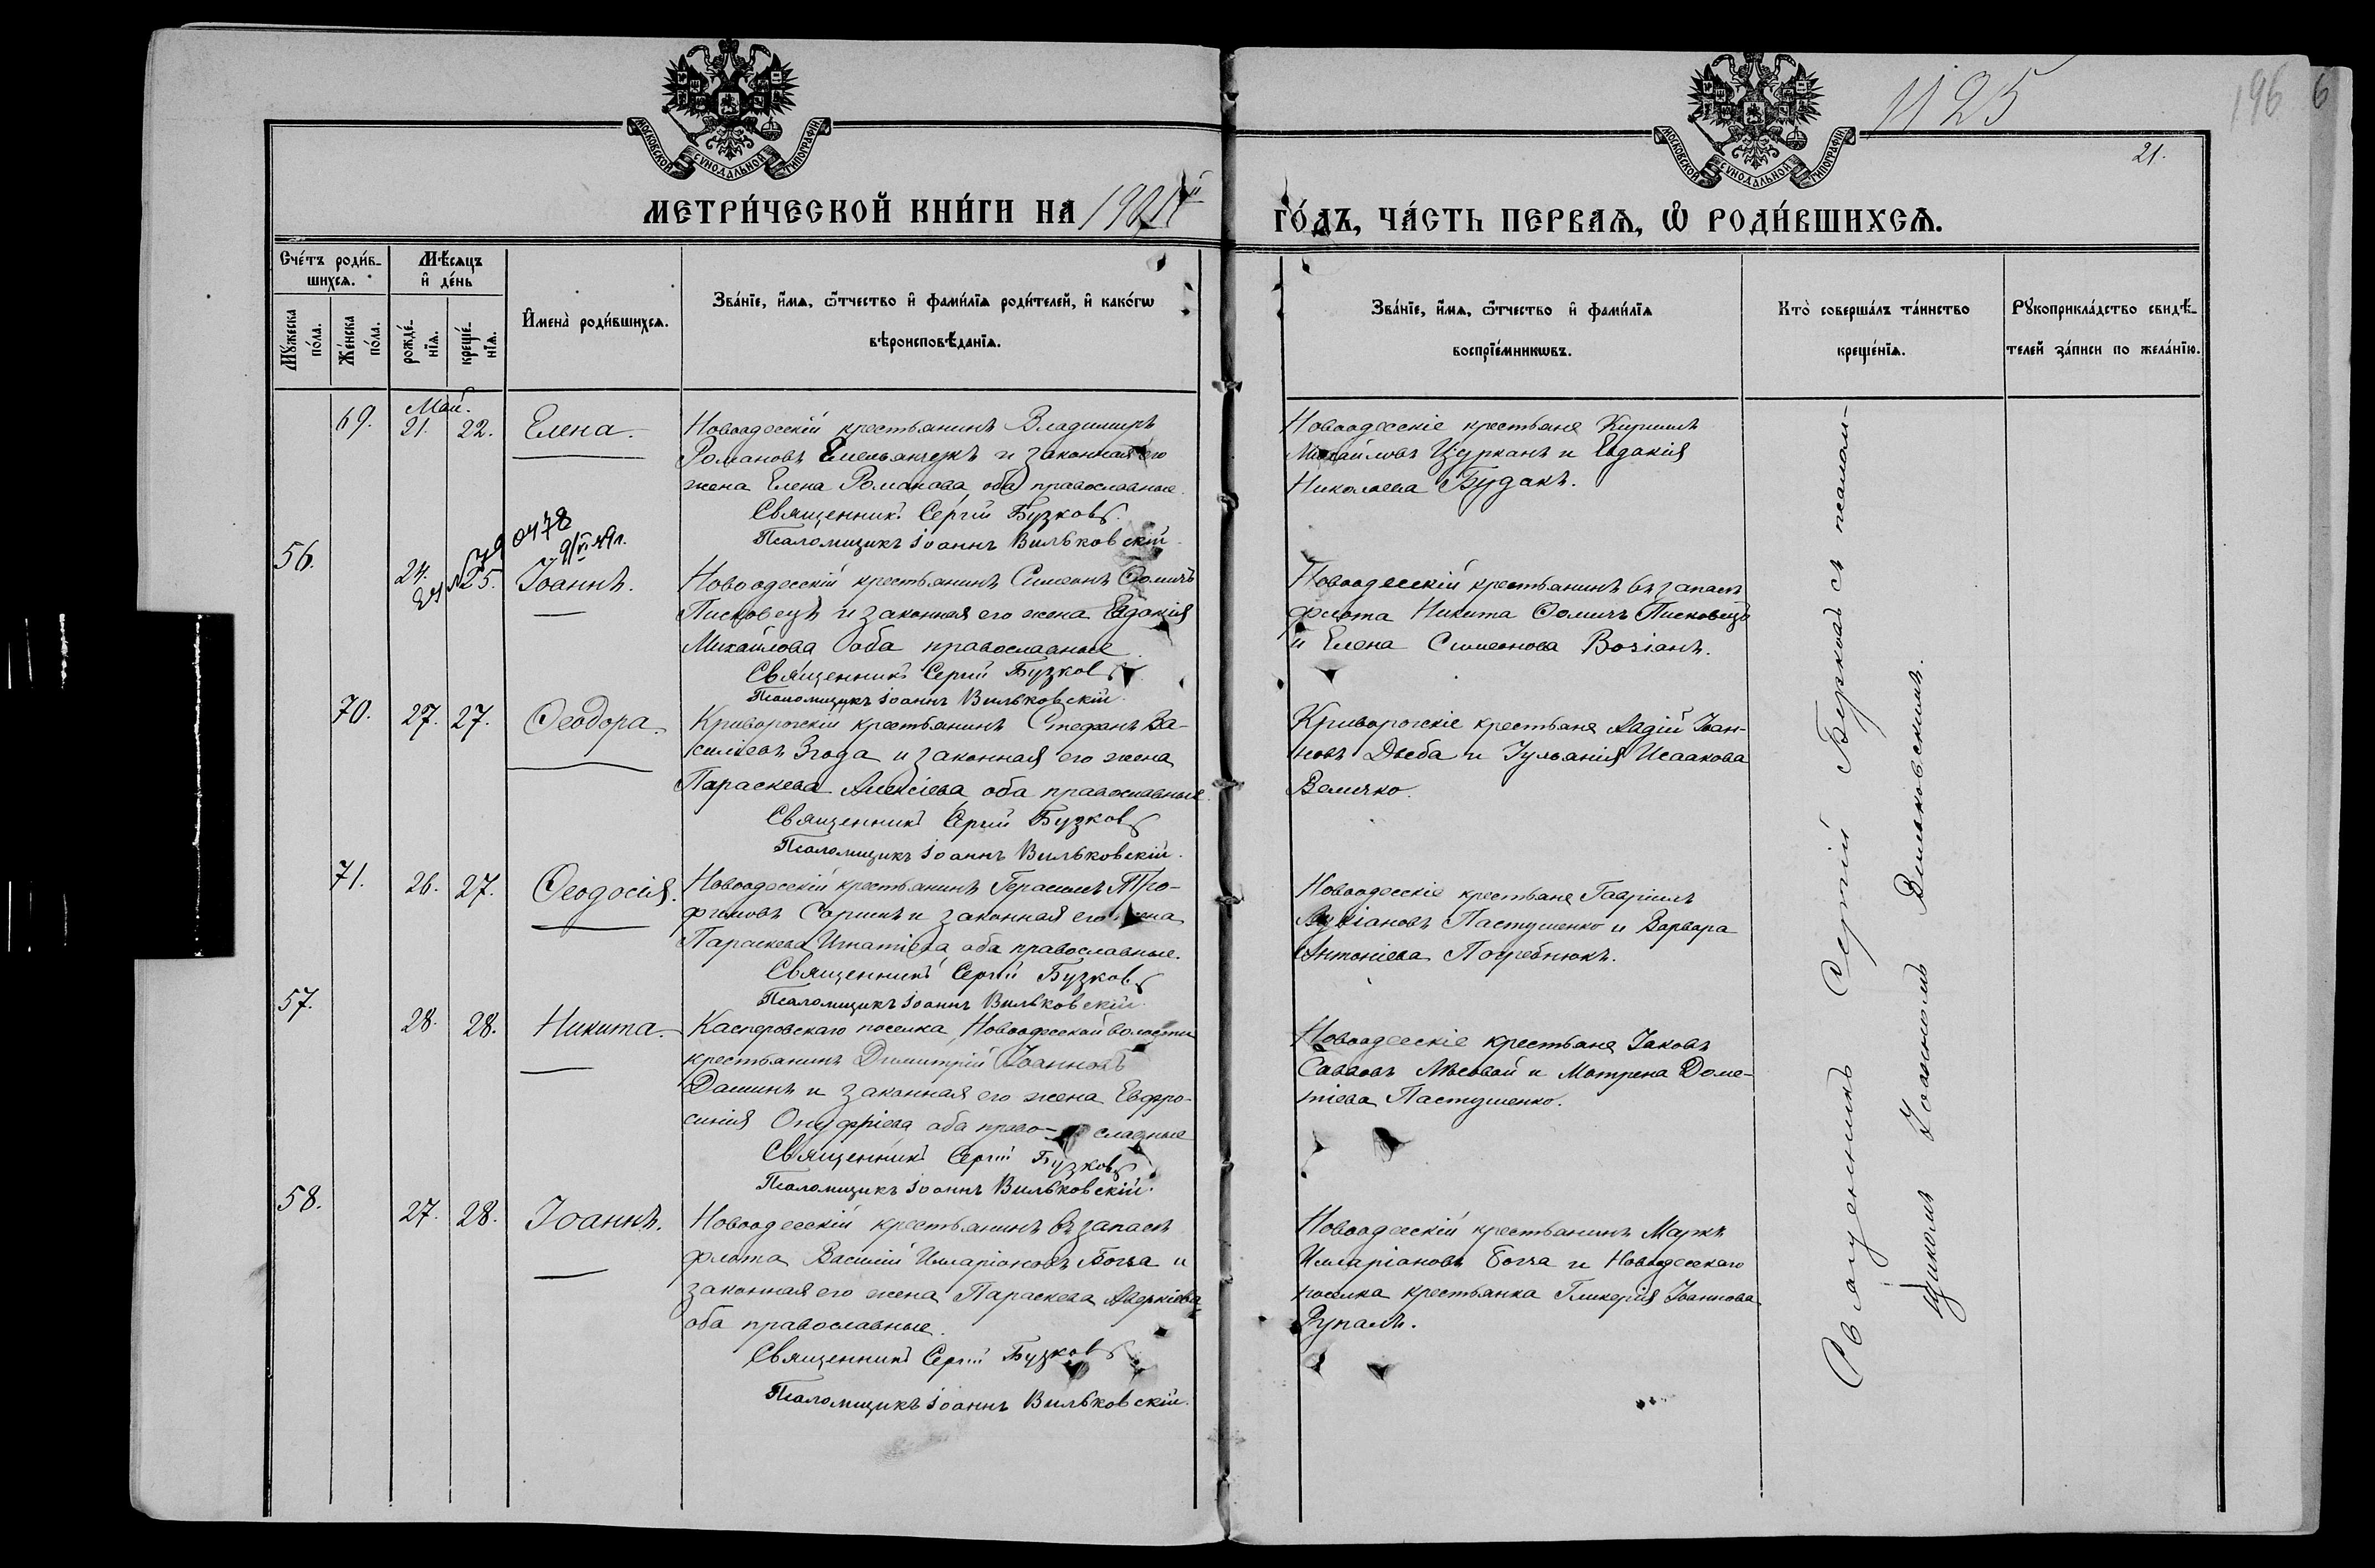 1125
196
6
21.
МОСКОВСКОЙ СѴНОДАЛЬНОЙ ТИПОГРАФІИ
МОСКОВСКОЙ СѴНОДАЛЬНОЙ ТИПОГРАФІИ
МЕТРИ́ЧЕСКОЙ КНИ́ГИ НА
ГО́ДЪ, ЧА́СТЬ ПЕРВАѦ, Ѡ҆ РОДИ́ВШИХСѦ.
Сче́тъ роди́в-
шихсѧ.
Мѣ́сѧцъ
и҆ де́нь
Мꙋ́жеска
по́ла.
Же́нска
по́ла.
рожде́-
нїѧ.
креще́-
нїѧ.
И҆мена̀ роди́вшихсѧ.
Зва́нїе, и҆́мѧ, ѻ҆́тчество и҆ фами́лїѧ роди́телей, и҆ како́гѡ
вѣроисповѣ́данїѧ.
Зва́нїе, и҆́мѧ, ѻ҆́тчество и҆ фами́лїѧ
воспрїе́мникѡвъ.
Кто̀ соверша́лъ та́инство
креще́нїѧ.
Рꙋкоприкла́дство свидѣ́-
телей за́писи по жела́нїю.
Май.
69.
21.
22.
Елена.
Новоодесскій крестьянинъ Владимиръ
Романовъ Емельянчукъ и законная его
жена Елена Романова, оба православные.
Священникъ Сергій Бузковъ.
Псаломщикъ Іоаннъ Вильковскій.
Новоодесскіе крестьяне Кириллъ
Михайловъ Цурканъ и Евдокія
Николаева Будакъ.
56.
24.
25.
Іоаннъ.
Новоодесскій крестьянинъ Симеонъ Ѳомичъ
Писковецъ и законная его жена Евдокія
Михайлова оба православные.
Священникъ Сергій Бузковъ.
Псаломщикъ Іоаннъ Вильковскій.
Новоодесскій крестьянинъ въ запасѣ
флота Никита Ѳомичъ Писковецъ
и Елена Симеонова Возіанъ.
70.
27.
27.
Ѳеодора.
Криворогскій крестьянинъ Стефанъ Ва-
силіевъ Згода и законная его жена
Параскева Алексіева оба православные.
Священникъ Сергій Бузковъ
Псаломщикъ Іоаннъ Вильковскій.
Криворогскіе крестьяне Авдій Іоан-
новъ Дзеба и Іуліанія Исаакова
Величко.
71.
26.
27.
Ѳеодосія.
Новоодесскій крестьянинъ Герасимъ Тро-
фимовъ и законная его жена
Параскева Игнатіева, оба православные.
Священникъ Сергій Бузковъ
Псаломщикъ Іоаннъ Вильковскій.
Новоодесскіе крестьяне Гавріилъ
Лукіановъ Пастушенко и Варвара
Антоніева Погребнюкъ.
57.
28.
28.
Никита.
Касперовскаго поселка, Новоодесской волости
крестьянинъ Димитрій Іоанновъ
Дашинъ и законная его жена Евфро-
синія Онуфріева оба право- славные
Священникъ Сергій Бузковъ
Псаломщикъ Іоаннъ Вильковскій.
Новоодесскіе крестьяне Іаковъ
Саввовъ Лѣсовой и Матрена Доме-
тіева Пастушенко.
58.
27.
28.
Іоаннъ.
Новоодесскій крестьянинъ въ запасѣ
флота Василій Иларіоновъ Богза и
законная его жена Параскева Аверкіева
оба православные.
Священникъ Сергій Бузковъ
Псаломщикъ Іоаннъ Вильковскій.
Новоодесскій крестьянинъ Маркъ
Иларіоновъ Богза и Новоодесскаго
поселка крестьянка Гликерія Іоаннова
Священникъ Сергій Бузковъ съ псалом-
щикомъ Іоанномъ Вильковскимъ.